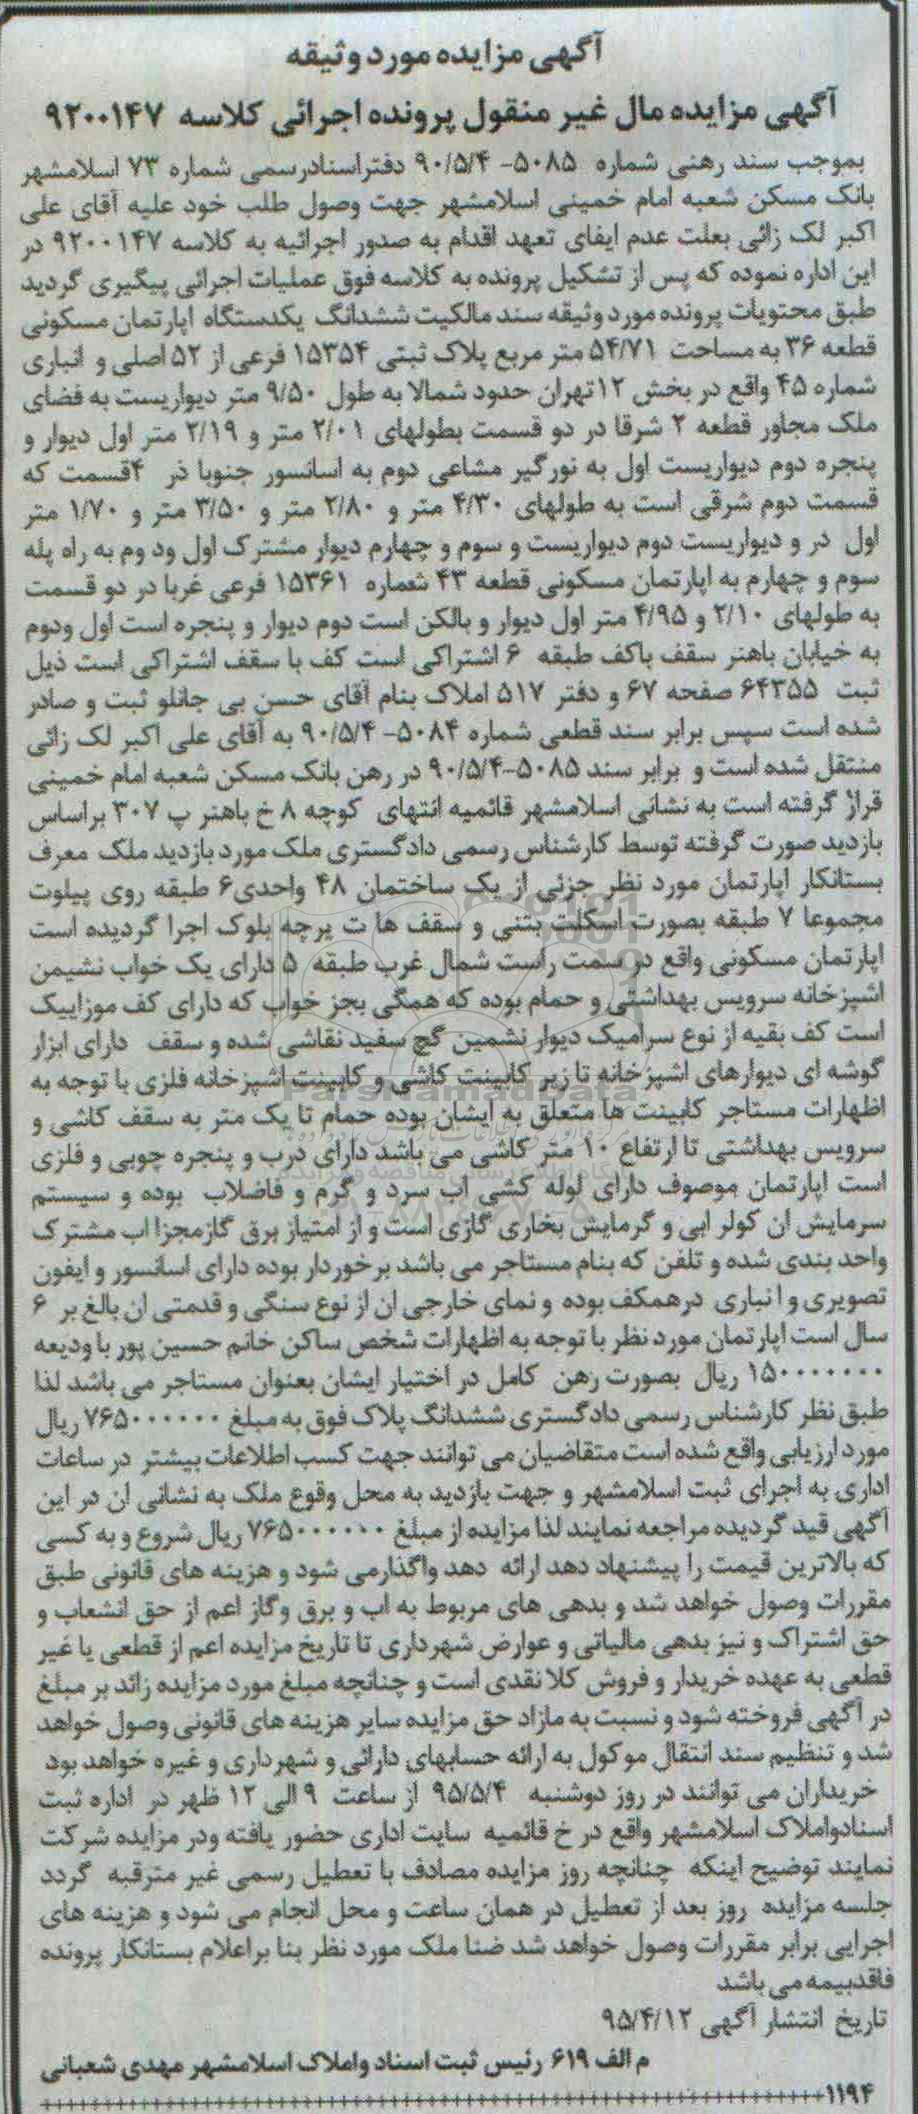 آگهی مزایده مورد وثیقه
آگهی مزایده مال غیر منقول پرونده اجرائی کلاسه ۹۲۰۰۱۴۷
بموجب سند رهنی شماره ۵۰۸۵- ۹۰/۵/۴ دفتراسنادرسمی شماره ۷۳ اسلامشهر
بانک مسکن شعبه امام خمینی اسلامشهر جهت وصول طلب خود علیه آقای علی
اکبر لک زائی بعلت عدم ایفای تعهد اقدام به صدور اجرائیه به کلاسه ۹۲۰۰۱۴۷ در
این اداره نموده که پس از تشکیل پرونده به کلاسه فوق عملیات اجرائی پیگیری گردید
طبق محتویات پرونده مورد وثیقه سند مالکیت ششدانگ یکدستگاه اپارتمان مسکونی
قطعه ۳۶ به مساحت ۵۴/۷۱ متر مربع پلاک ثبتی ۱۵۳۵۴ فرعی از ۵۲ اصلی و انباری
شماره ۴۵ واقع در بخش ۱۲تهران حدود شمالا به طول ۹/۵۰ متر دیواریست به فضای
ملک مجاور قطعه ۲ شرقا در دو قسمت بطولهای ۲/۰۱ متر و ۲/۱۹ متر اول دیوار و
پنجره دوم دیواریست اول به نورگیر مشاعی دوم به اسانسور جنوبا در ۴قسمت که
قسمت دوم شرقی است به طولهای ۴/۳۰ متر و ۲/۸۰ متر و ۳/۵۰ متر و ۱/۷۰ متر
اول در و دیواریست دوم دیواریست و سوم و چهارم دیوار مشترک اول ود وم به راه پله
سوم و چهارم به اپارتمان مسکونی قطعه ۴۳ شماره ۱۵۳۶۱ فرعی غربا در دو قسمت
به طولهای ۲/۱۰ و ۴/۹۵ متر اول دیوار و بالکن است دوم دیوار و پنجره است اول ودوم
به خیابان باهنر سقف باکف طبقه ۶ اشتراکی است کف با سقف اشتراکی است ذیل
ثبت ۶۴۳۵۵ صفحه ۶۷ و دفتر ۵۱۷ املاک بنام آقای حسن بی جانلو ثبت و صادر
شده است سپس برابر سند قطعی شماره ۵۰۸۴- ۹۰/۵/۴ به آقای علی اکبر لک زائی
منتقل شده است و برابر سند ۵۰۸۵-۹۰/۵/۴ در رهن بانک مسکن شعبه امام خمینی
قرار گرفته است به نشانی اسلامشهر قائمیه انتهای کوچه ۸ خ باهنر پ ۳۰۷ براساس
بازدید صورت گرفته توسط کارشناس رسمی دادگستری ملک مورد بازدید ملک معرف
بستانکار اپارتمان مورد نظر جزئی از یک ساختمان ۴۸ واحدی۶ طبقه روی پیلوت
مجموعا ۷ طبقه بصورت اسکلت بتنی و سقف ها ت یرچه بلوک اجرا گردیده است
اپارتمان مسکونی واقع در سمت راست شمال غرب طبقه ۵ دارای یک خواب نشیمن
اشپزخانه سرویس بهداشتی و حمام بوده که همگی بجز خواب که دارای کف موزاییک
است کف بقیه از نوع سرامیک دیوار نشمین گچ سفید نقاشی شده و سقف دارای ابزار
گوشه ای دیوارهای اشپزخانه تا زیر کابینت کاشی و کابینت اشپزخانه فلزی با توجه به
اظهارات مستاجر کابینت ها متعلق به ایشان بوده حمام تا یک متر به سقف کاشی و
سرویس بهداشتی تا ارتفاع ۱۰ متر کاشی می باشد دارای درب و پنجره چوبی و فلزی
است اپارتمان موصوف دارای لوله کشی اب سرد و گرم و فاضلاب بوده و سیستم
سرمایش ان کولر ابی و گرمایش بخاری گازی است و از امتیاز برق گازمجزا اب مشترک
واحد بندی شده و تلفن که بنام مستاجر می باشد برخوردار بوده دارای اسانسور و ایفون
تصویری و انباری درهمکف بوده و نمای خارجی ان از نوع سنگی و قدمتی ان بالغ بر ۶
سال است اپارتمان مورد نظر با توجه به اظهارات شخص ساکن خانم حسین پور با ودیعه
۱۵۰۰۰۰۰۰۰ ریال بصورت رهن کامل در اختیار ایشان بعنوان مستاجر می باشد لذا
طبق نظر کارشناس رسمی دادگستری ششدانگ پلاک فوق به مبلغ ۷۶۵۰۰۰۰۰۰ ریال
مورد ارزیابی واقع شده است متقاضیان می توانند جهت کسب اطلاعات بیشتر در ساعات
اداری به اجرای ثبت اسلامشهر و جهت بازدید به محل وقوع ملک به نشانی ان در این
آگهی قید گردیده مراجعه نمایند لذا مزایده از مبلغ ۷۶۵۰۰۰۰۰۰ ریال شروع و به کسی
که بالاترین قیمت را پیشنهاد دهد ارائه دهد واگذارمی شود و هزینه های قانونی طبق
مقررات وصول خواهد شد و بدهی های مربوط به اب و برق وگاز اعم از حق انشعاب و
حق اشتراک و نیز بدهی مالیاتی و عوارض شهرداری تا تاریخ مزایده اعم از قطعی یا غیر
قطعی به عهده خریدار و فروش کلا نقدی است و چنانچه مبلغ مورد مزایده زائد بر مبلغ
در آگهی فروخته شود و نسبت به مازاد حق مزایده سایر هزینه های قانونی وصول خواهد
شد و تنظیم سند انتقال موکول به ارائه حسابهای دارائی و شهرداری و غیره خواهد بود
خریداران می توانند در روز دوشنبه ۹۵/۵/۴ از ساعت ۹ الی ۱۲ ظهر در اداره ثبت
اسنادواملاک اسلامشهر واقع در خ قائمیه سایت اداری حضور یافته ودر مزایده شرکت
نمایند توضیح اینکه چنانچه روز مزایده مصادف با تعطیل رسمی غیر مترقبه گردد
جلسه مزایده روز بعد از تعطیل در همان ساعت و محل انجام می شود و هزینه های
اجرایی برابر مقررات وصول خواهد شد ضنا ملک مورد نظر بنا براعلام بستانکار پرونده
فاقدبیمه می باشد
تاریخ انتشار آگهی ۹۵/۴/۱۲
م الف ۶۱۹ رئیس ثبت اسناد واملاک اسلامشهر مهدی شعبانی
۱۱۹۴
ParsNamadData